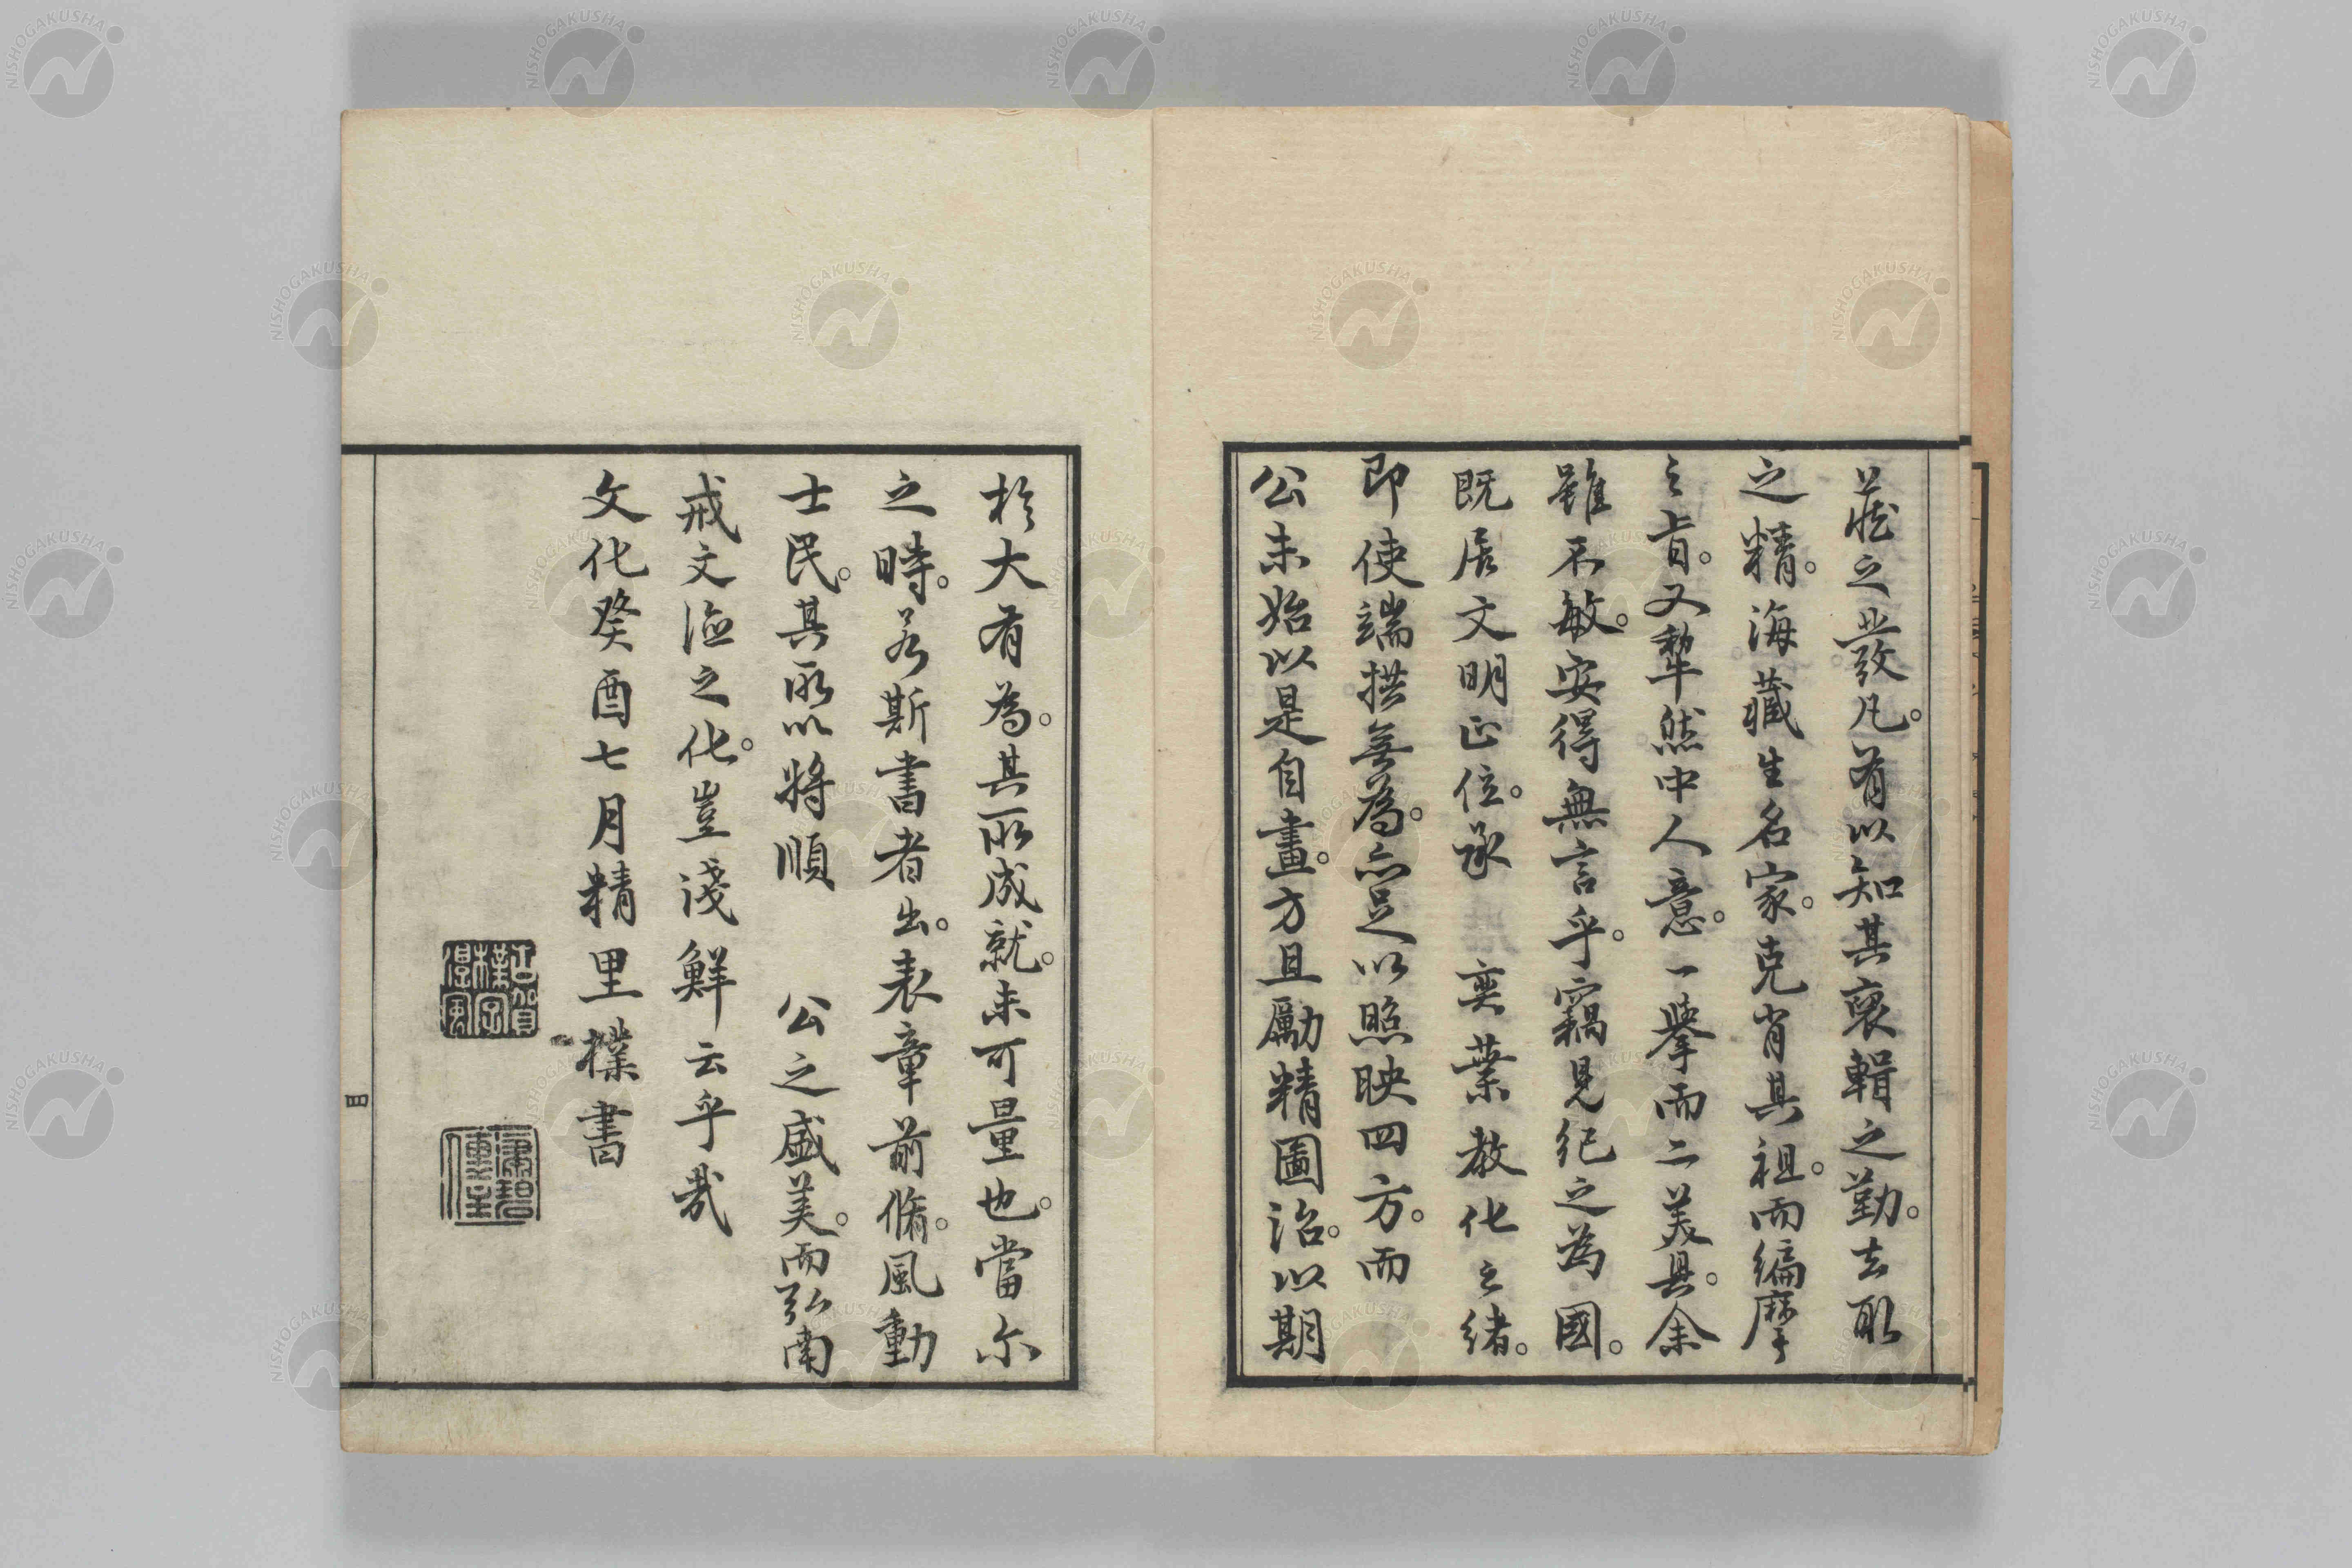 莊之發凡。有以知其裒輯之勤。去取
之精。海藏生名家。克肖其祖。而編摩
之旨。又犂然中人意。一擧而二美具。余
雖不敏。安得無言乎。竊見紀之為國。
既居文明正位。承 奕葉教化之緒。
即使端拱無為。亦足以照映四方。而
公未始以是自畫。方且勵精圖治。以期
於大有為。其所成就。未可量也。當尓
之時。若斯書者出。表章前脩。風動
士民。其所以將順 公之盛美。而弘南
戒文治之化。豈淺鮮云乎哉
文化癸酉七月精里樸書
四
NISHOGAKUSHA